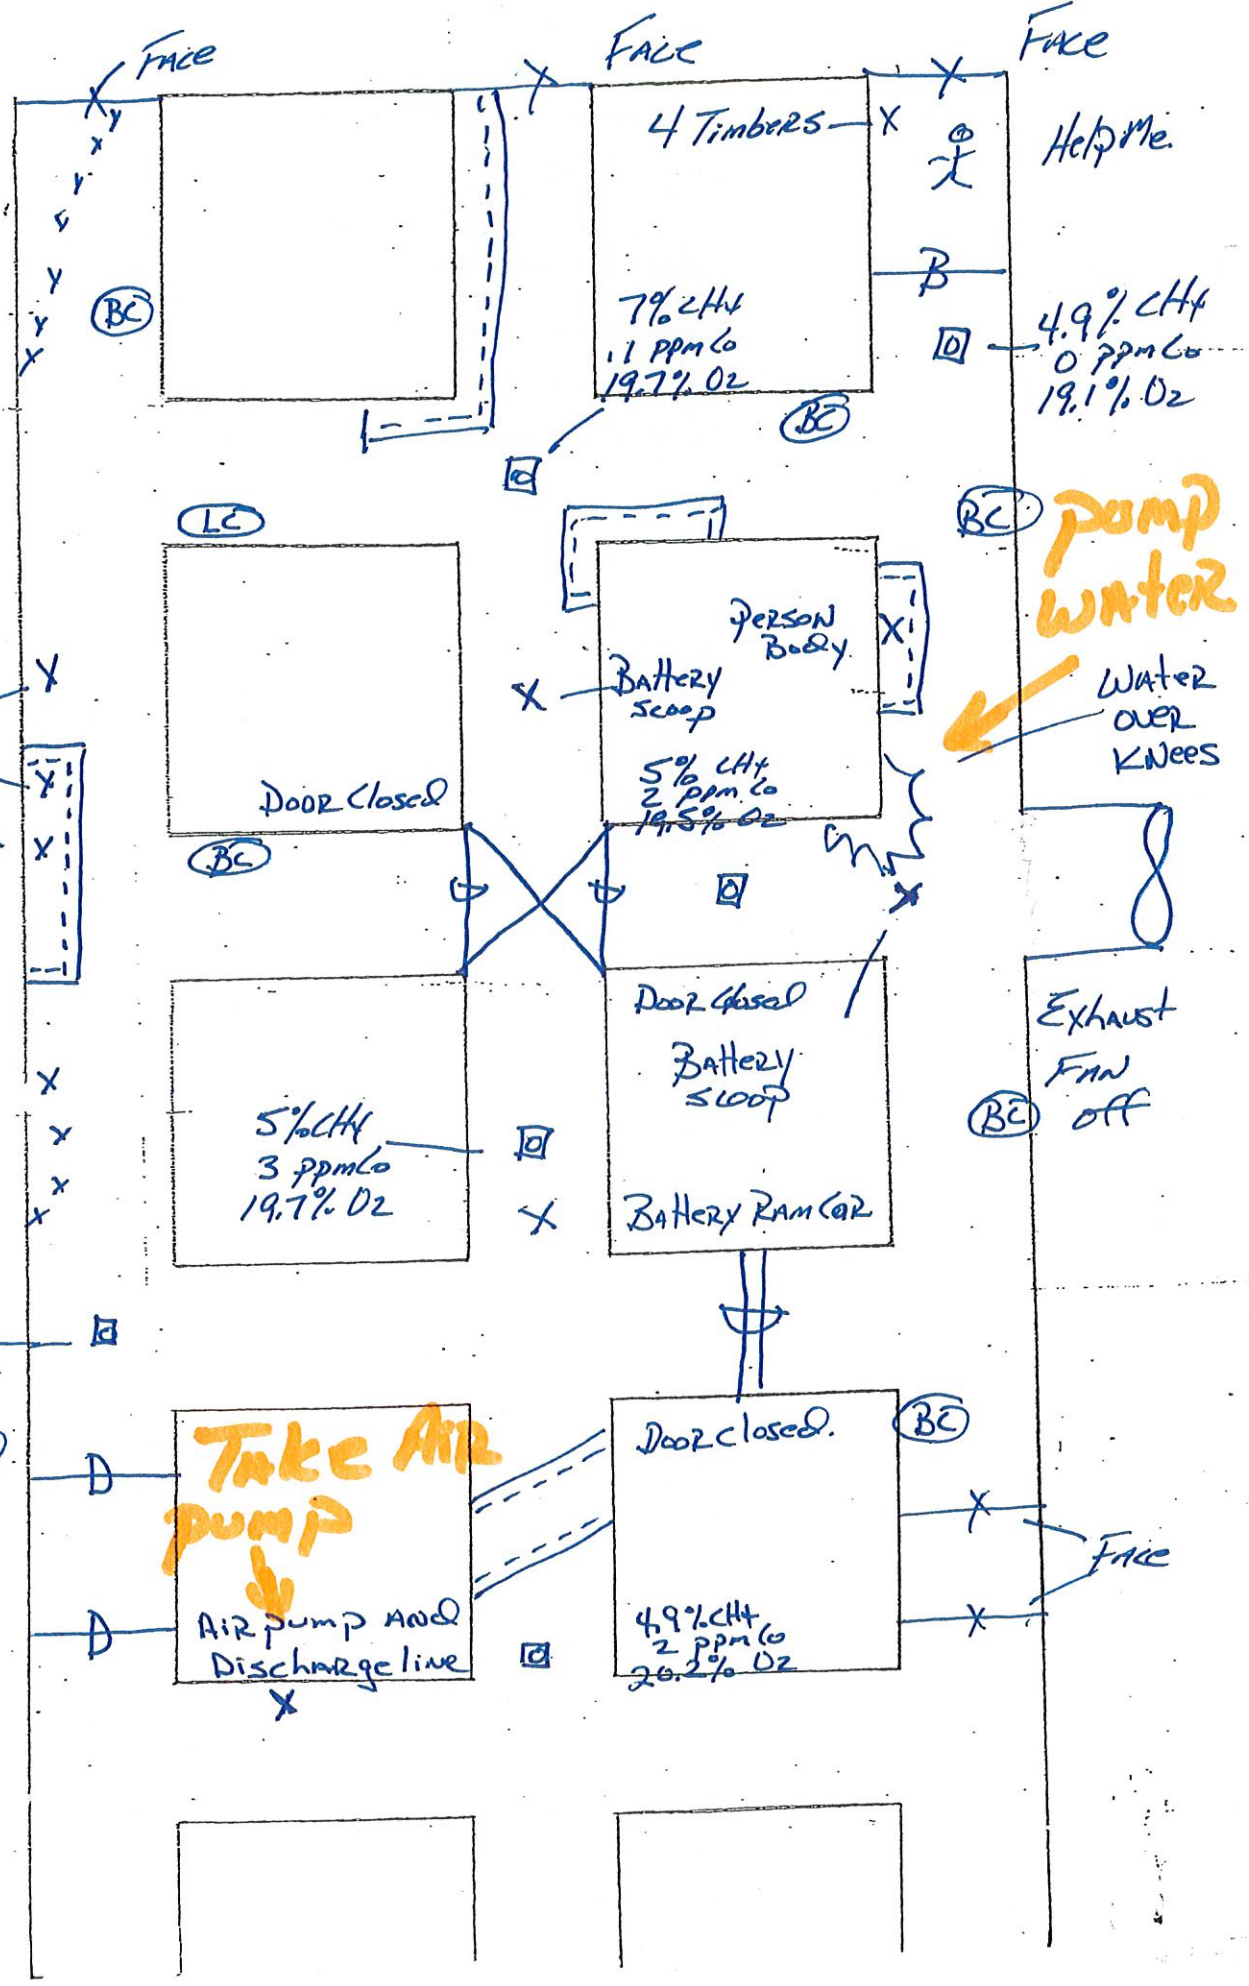 Face
Face
Face
4 Timbers
Help Me.
BC
B
7% CH4
.1 ppm Co
19.7% O2
4.9% CH4
0 ppm Co
19.1% O2
BC
LC
BC
pump
water
Person
Body
Battery
scoop
Water
over
Knees
5% CH4
2 ppm Co
19.5% O2
Door Closed
BC
Door Closed
Battery
scoop
Exhaust
Fan
off
BC
5% CH4
3 ppm Co
19.7% O2
Battery Ram Car
Take Air
pump
Door closed.
BC
D
Face
D
Air pump And
Discharge line
4.9% CH4
2 ppm Co
20.2% O2